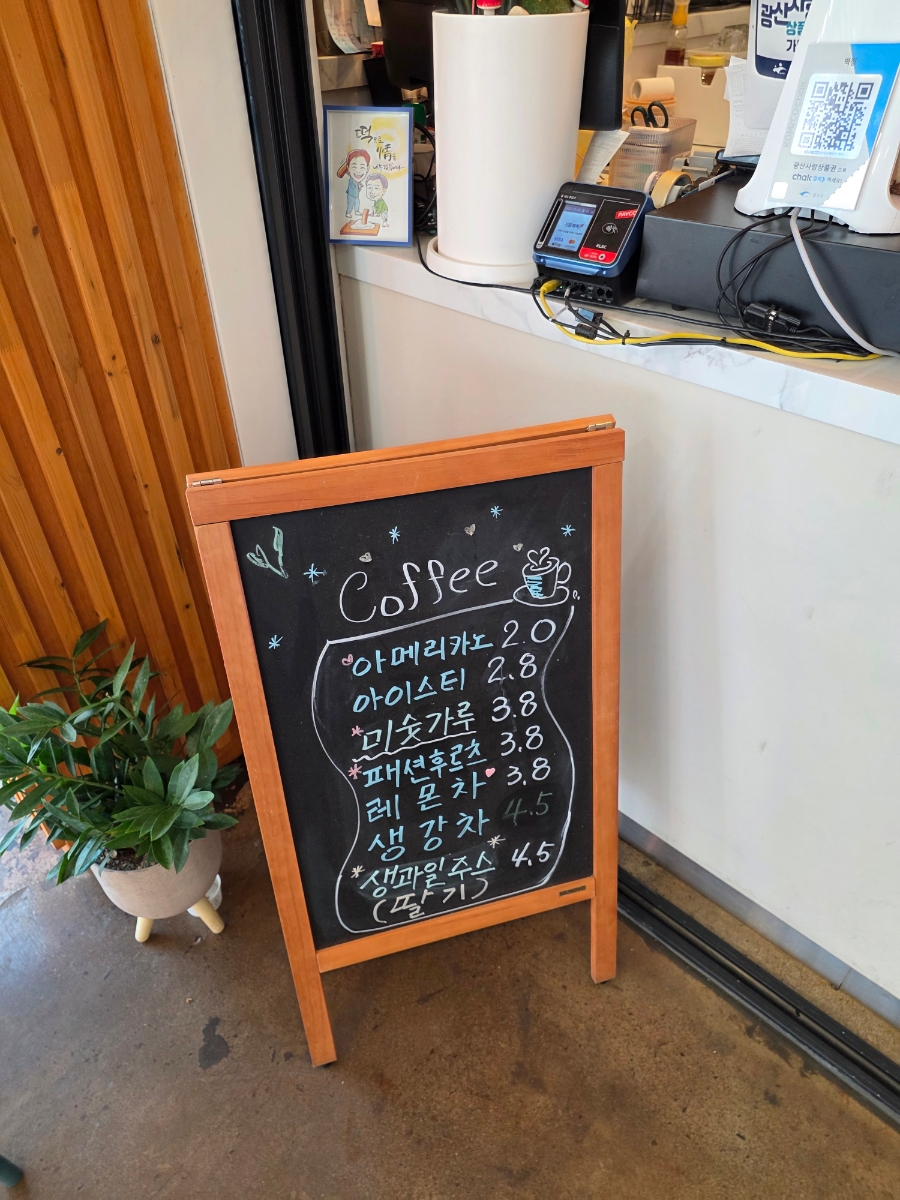 광산사랑
상품
가
떡으로
情을
광산사랑상품권
chak
PAYCO
Coffee
아메리카노 2.0
아이스티 2.8
*미숫가루 3.8
*패션후르츠 3.8
레몬차 3.8
생강차 4.5
*생과일주스* 4.5
(딸기)